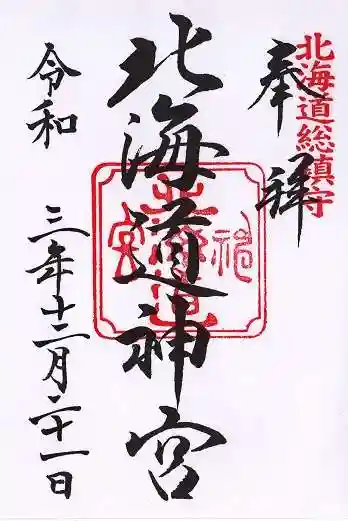 奉拝
北海道総鎮守
北海道神宮
令和三年十二月二十一日